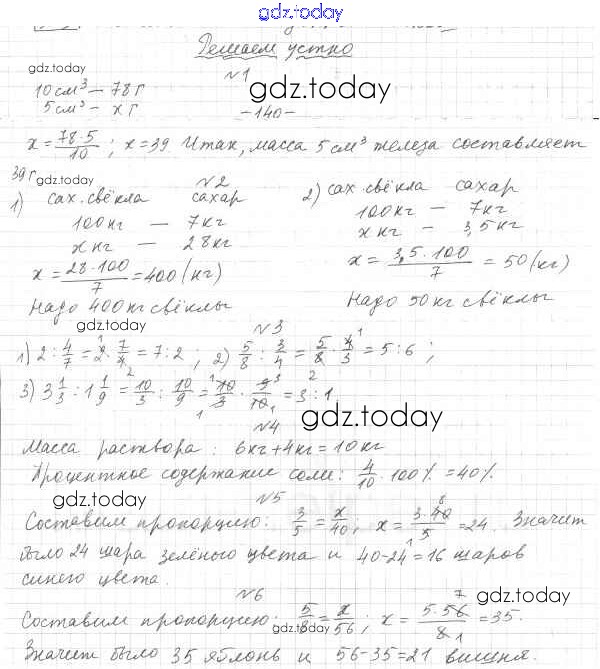 gdz.today
Решаем устно
№1
gdz.today
10 см³ – 78 г
gdz.today
5 см³ – x г
–140–
x = 78·5/10 ; x = 39 Итак, масса 5 см³ железа составляет
39 г
gdz.today
№2
1) сах. свёкла сахар
100 кг — 7 кг
x кг — 28 кг
x = 28·100/7 = 400 (кг)
Надо 400 кг свёклы
2) сах. свёкла сахар
100 кг — 7 кг
x кг — 3,5 кг
x = 3,5·100/7 = 50 (кг)
Надо 50 кг свёклы
gdz.today
№3
1) 2 : 4/7 = 2 · 7/4 = 7 : 2 ; 2) 5/8 : 3/4 = 5/8 · 4/3 = 5 : 6 ;
3) 3 1/3 : 1 1/9 = 10/3 : 10/9 = 10/3 · 9/10 = 3 : 1
gdz.today
№4
Масса раствора : 6 кг + 4 кг = 10 кг
Процентное содержание соли: 4/10 · 100% = 40%
gdz.today
№5
Составим пропорцию: 3/5 = x/40 ; x = 3·40/5 = 24. Значит
было 24 шара зелёного цвета и 40-24 = 16 шаров
синего цвета.
№6
Составим пропорцию: 5/8 = x/56 ; x = 5·56/8 = 35.
gdz.today
gdz.today
Значит было 35 яблонь и 56-35 = 21 вишня.